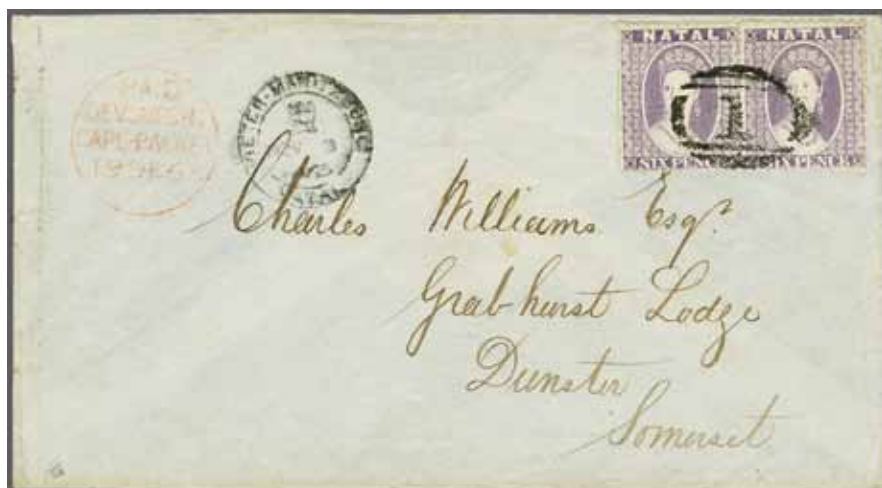 NATAL NATAL
SIX PENCE SIX PENCE
1
PAID
DEVONPORT
CAPE-PACKET
PIETER-MARITZBURG
NATAL
Charles Williams Esqr.
Grabhurst Lodge
Dunster
Somerset